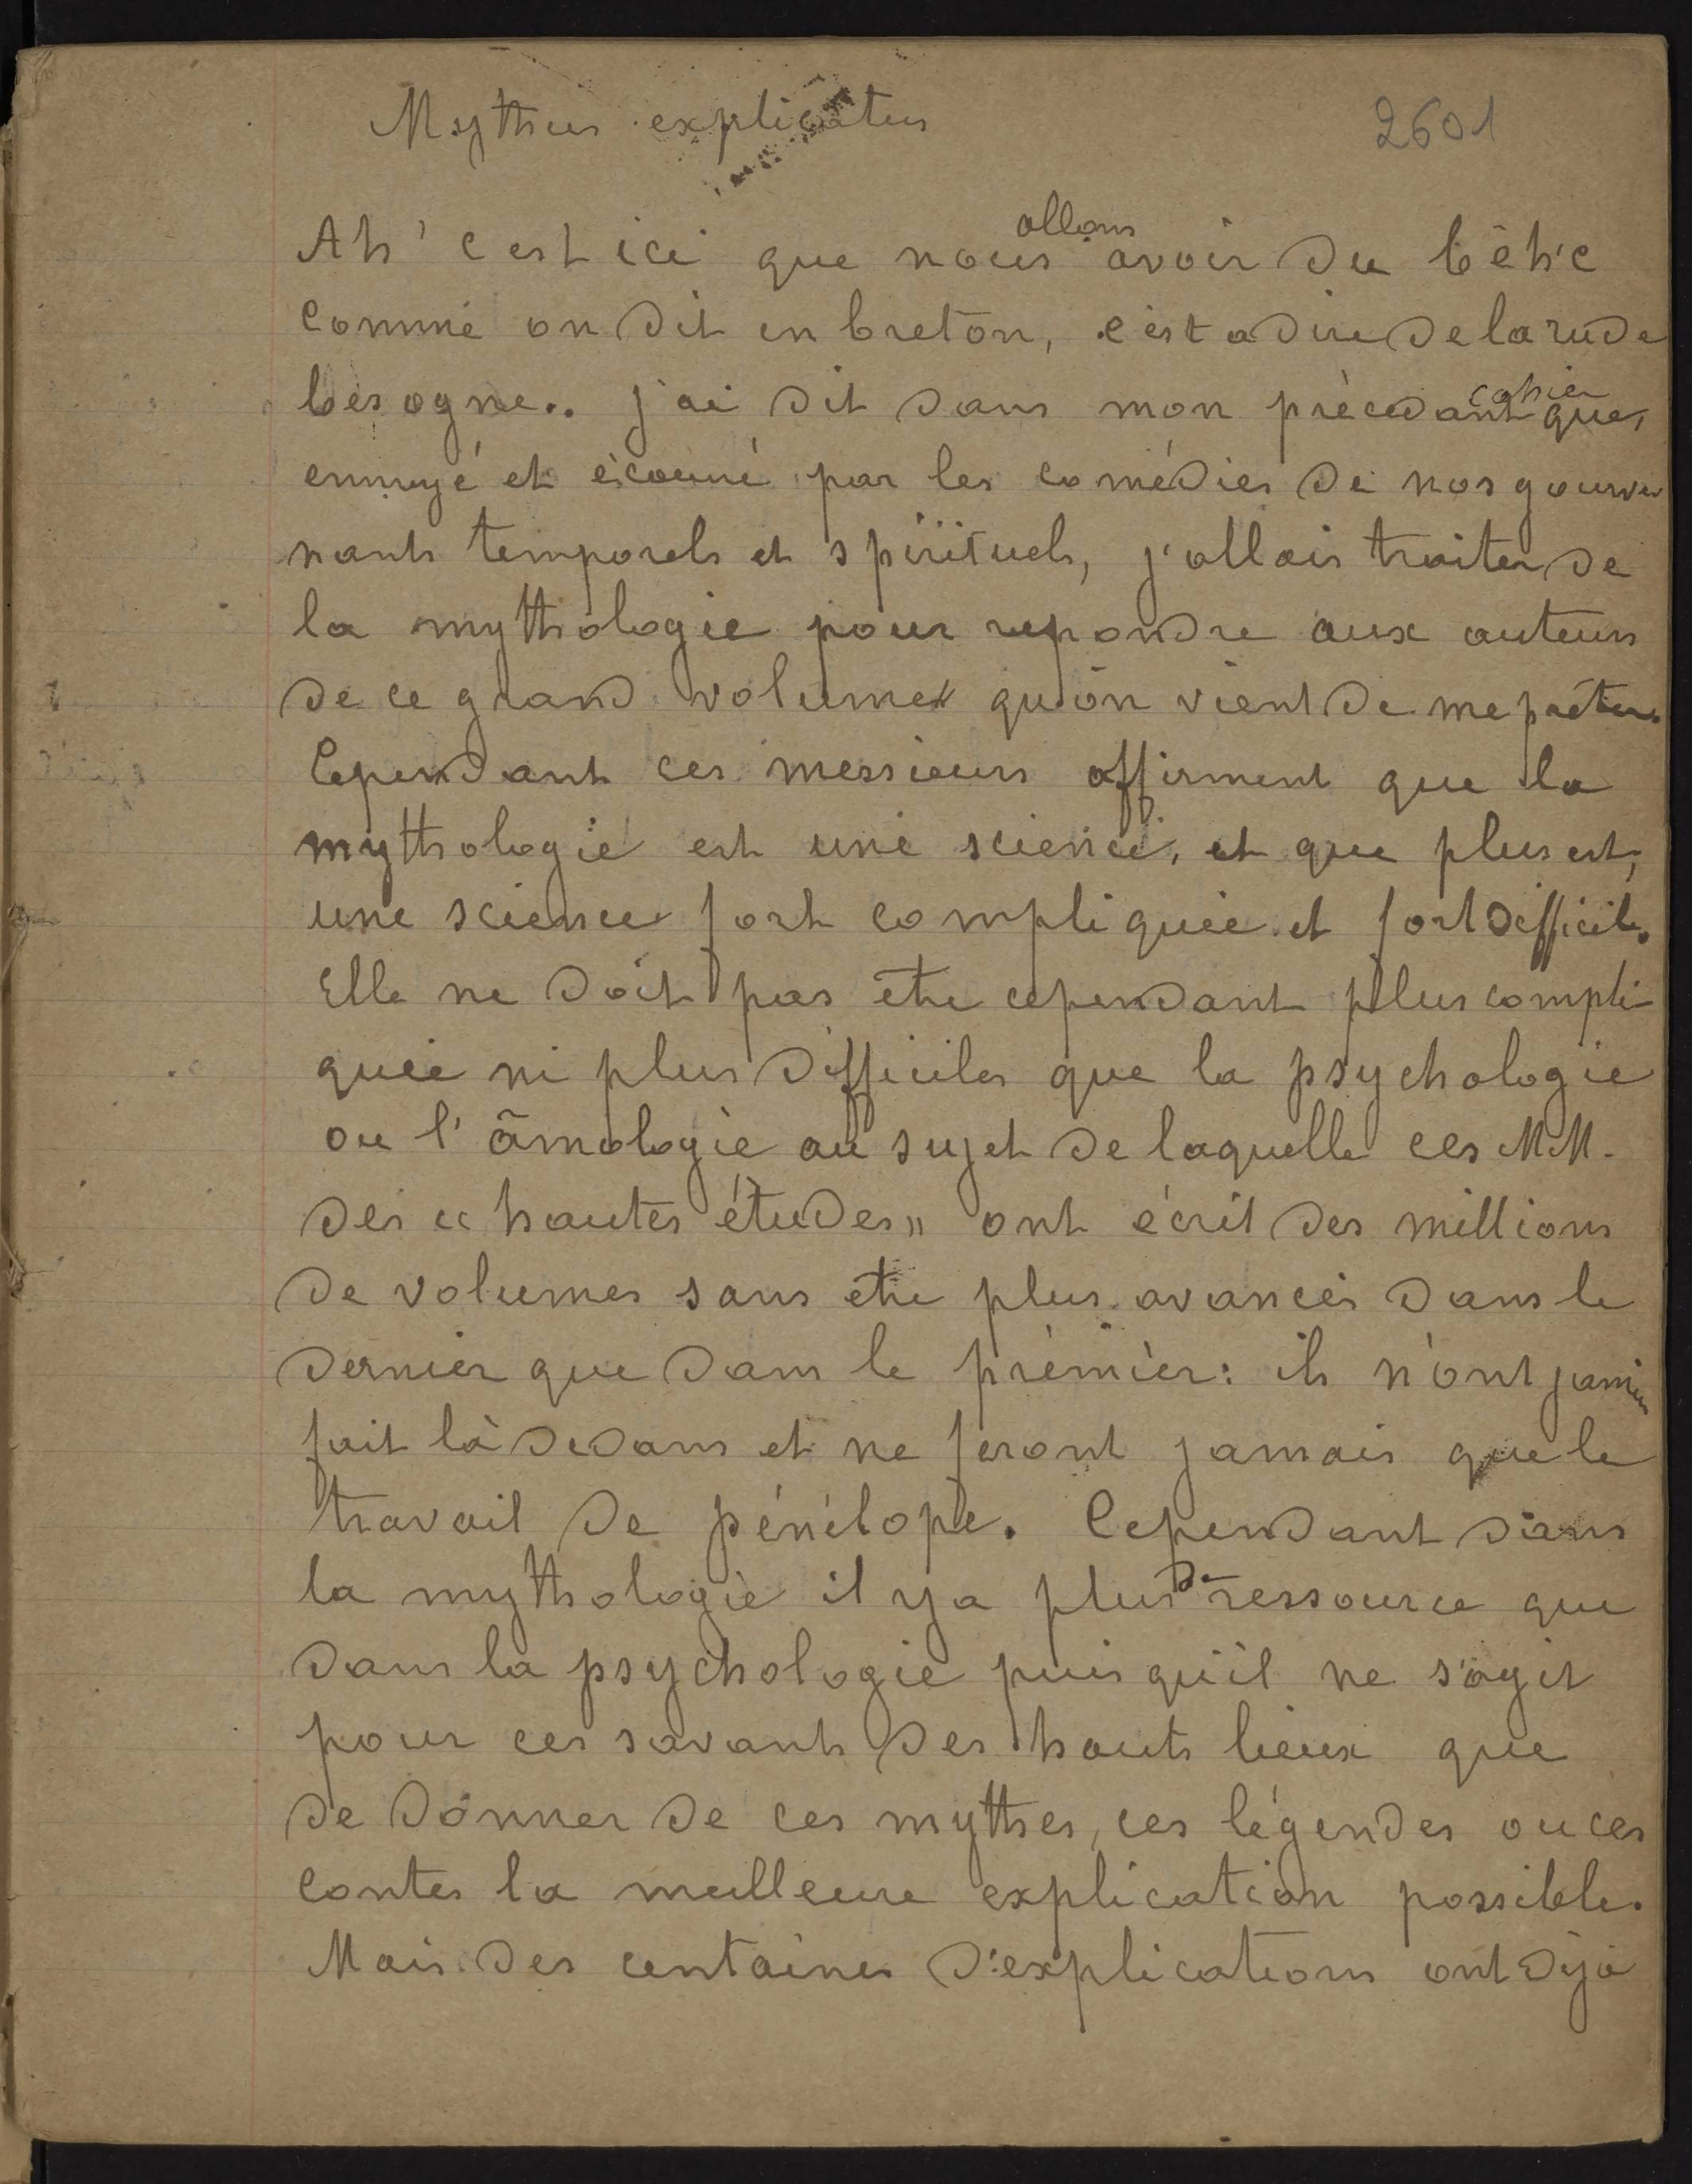 Mythus explicatus
2601
Ah' c'est ici que nous allons avoir du bèh'c
comme on dit en breton, c'est a dire de la rude
besogne.. j'ai dit dans mon précedant cahier que,
ennuyé et écouné par les comédies de nos gouver
nants temporels et spirituels, j'allais traiter de
la mythologie pour repondre aux auteurs
de ce grand volume qu'on vient de me prêter.
Cependant ces messieurs affirment que la
mythologie est une science, et que plus est,
une science fort compliquée et fort difficile.
Elle ne doit pas être cependant plus compli
quée ni plus difficiles que la psychologie
ou l'âmologie au sujet de laquelle ces MM.
des « hautes études » ont écrit des millions
de volumes sans etre plus avancés dans le
dernier que dans le prémier: ils n'ont jamais
fait là dedans et ne feront jamais que le
travail de pénélope. Cependant dans
la mythologie il y a plus de ressource que
dans la psychologie puis qu'il ne s'agit
pour ces savants des hauts lieux que
de donner de ces mythes, ces légendes ou ces
contes la meilleure explication possible.
Mais des centaines d'explications ont déjà